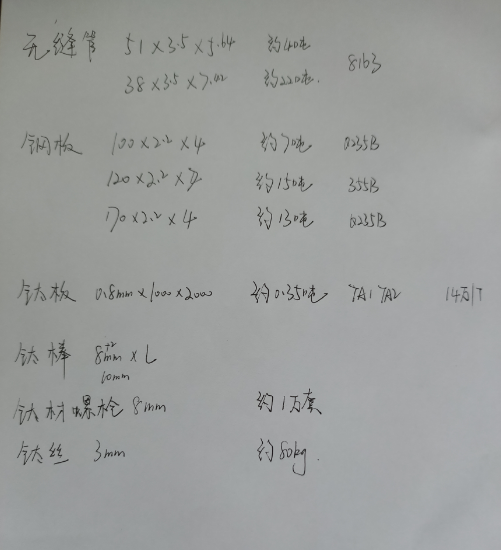 无缝管 51×3.5×5.64 约40吨
38×3.5×7.02 约220吨. 8163
钢板 100×2.2×4 约70吨 Q235B
120×2.2×7 约150吨 355B
170×2.2×4 约130吨 Q235B
钛板 0.8mm×1000×2000 约0.35吨 TA1 TA2 14万/T
钛棒 8mm×L
10mm
钛材螺栓 8mm 约1万套
钛丝 3mm 约80kg.